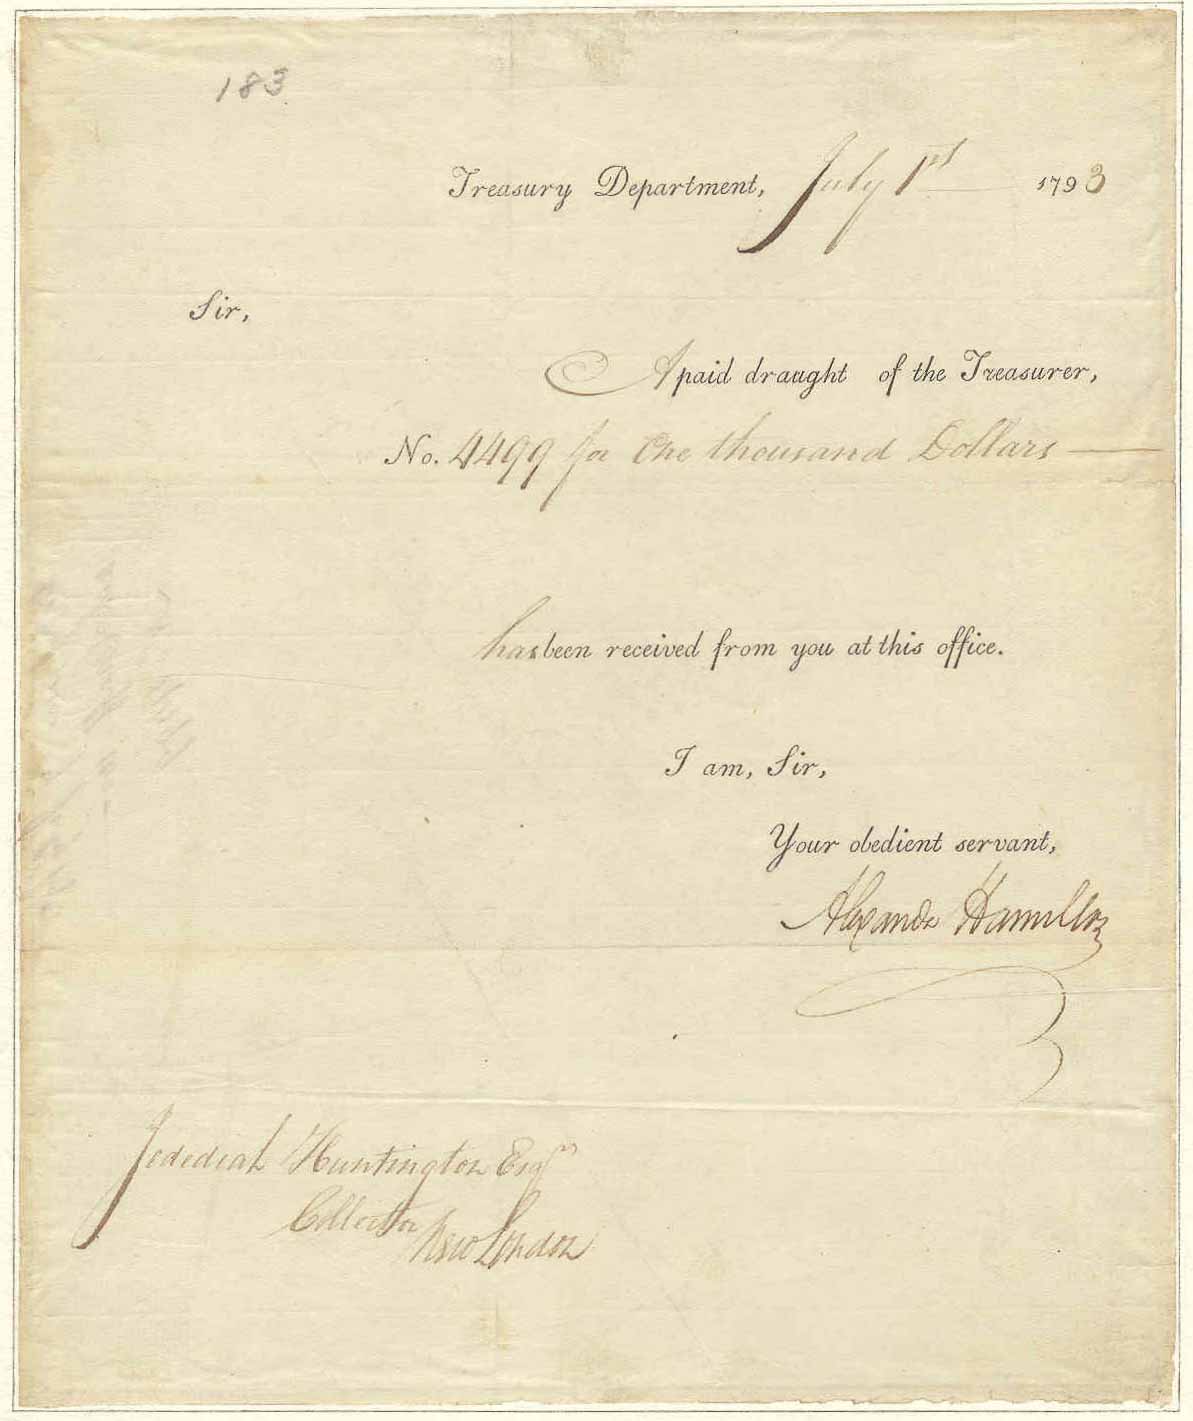 183
Treasury Department, July 1st 1793
Sir,
A paid draught of the Treasurer,
No. 4499 for One thousand Dollars
has been received from you at this office.
I am, Sir,
Your obedient servant,
Alexander Hamilton
Jedediah Huntington Esqr
Collector New London